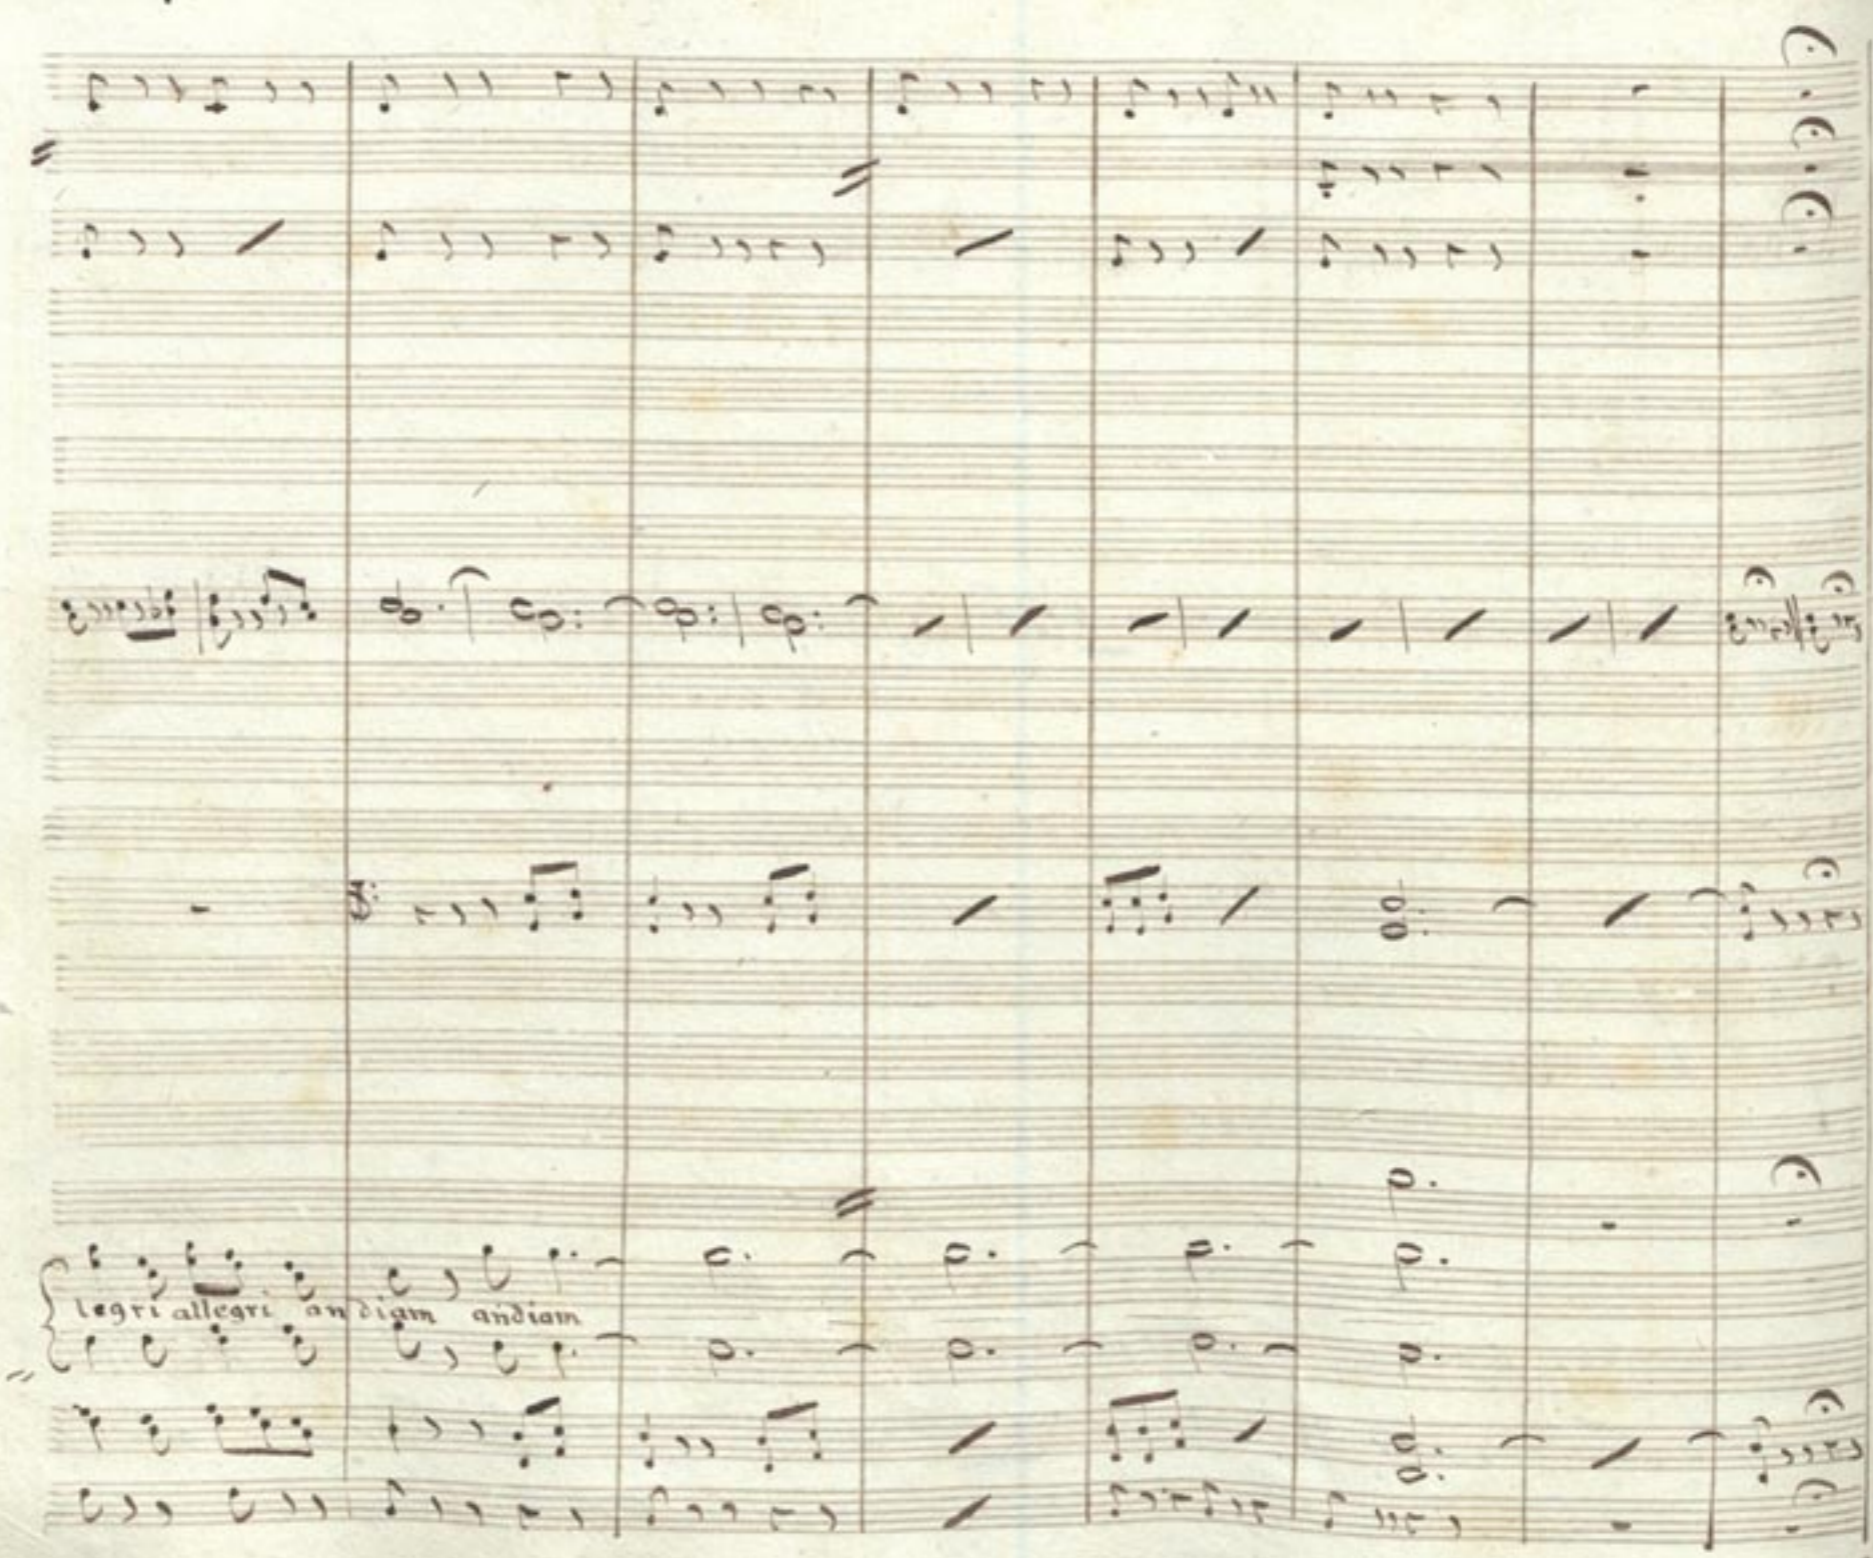 legri allegri andiam andiam